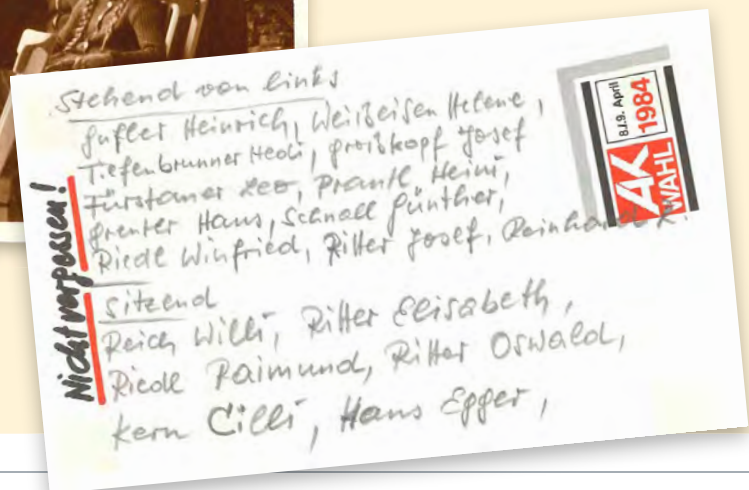 Stehend von links
Gufler Heinrich, Weißeisen Helene,
Tiefenbrunner Hedi, Großkopf Josef
Fürstaner Leo, Prantl Heini,
Grenter Hans, Schnall Günther,
Riedl Winfried, Ritter Josef, Reinhardt
Sitzend
Reich Willi, Ritter Elisabeth,
Riedl Raimund, Ritter Oswald,
Kern Cilli, Hans Egger,
Nicht vergessen!
8./9. April
1984
AK
WAHL